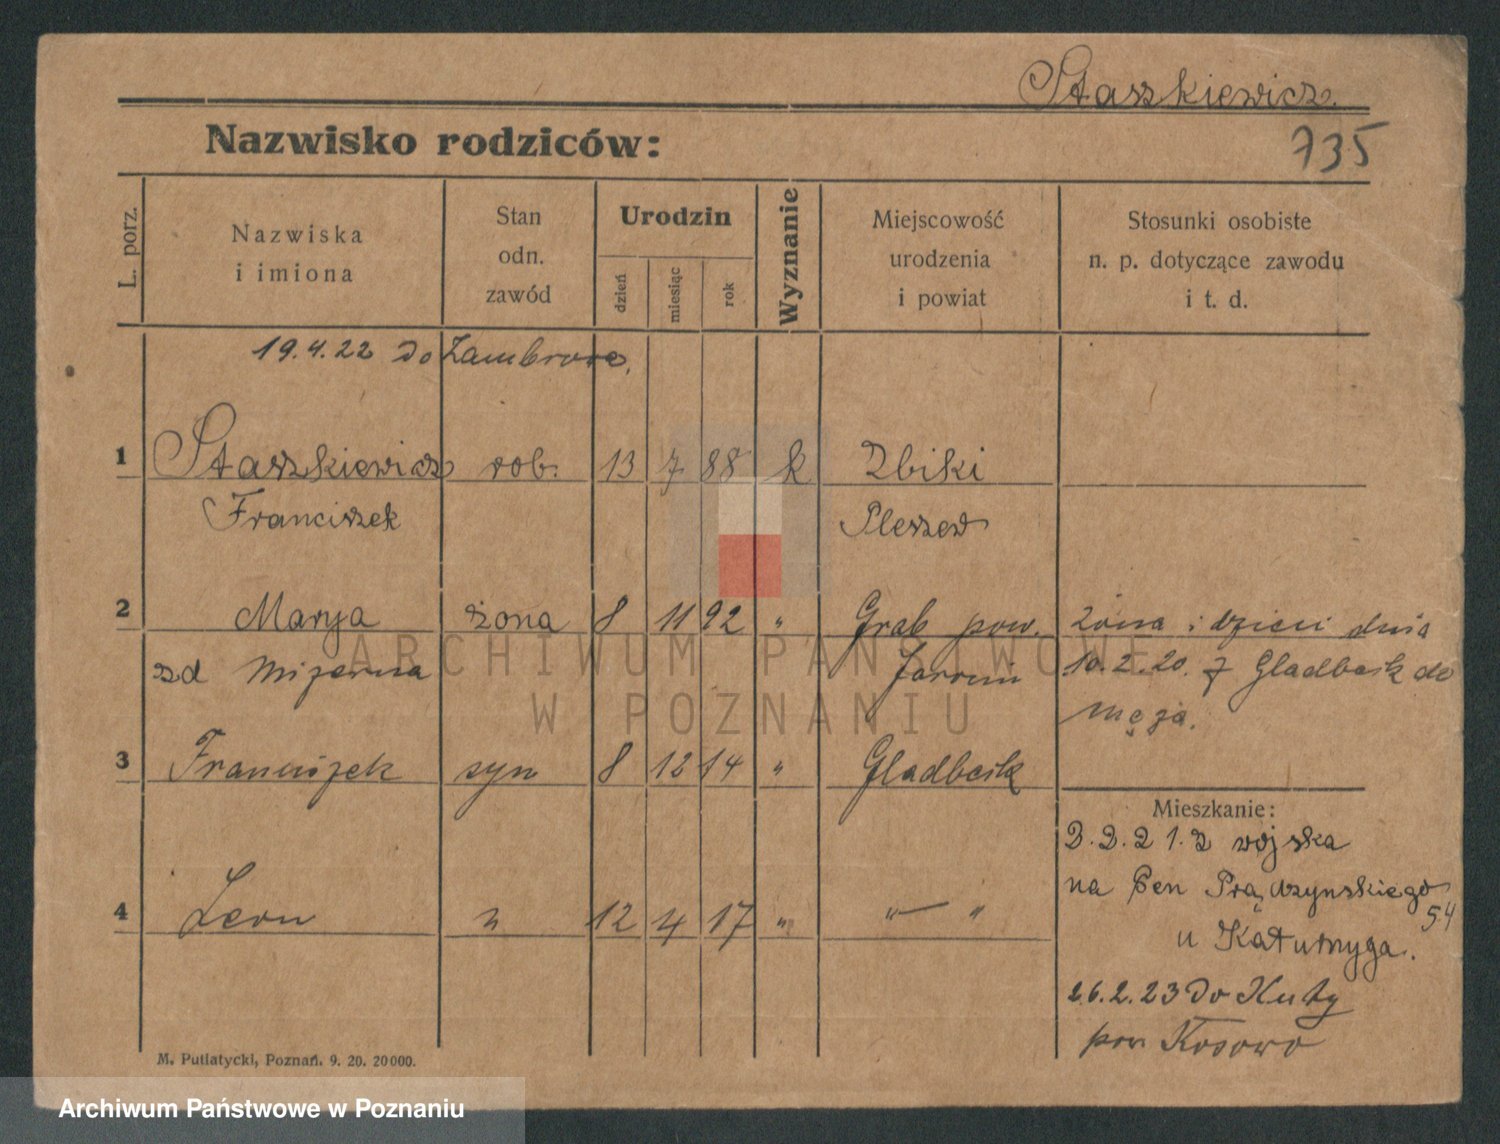 Staszkiewicz.
Nazwisko rodziców:
735
L. porz.
Nazwiska
i imiona
Stan
odn.
zawód
Urodzin
dzień
miesiąc
rok
Wyznanie
Miejscowość
urodzenia
i powiat
Stosunki osobiste
n. p. dotyczące zawodu
i t. d.
19.4.22 do Zambrowa.
1 Staszkiewicz rob. 13 7 88 k Zbiki
Franciszek Pleszew
2 Marya żona 8 11 92 " Grab pow. Żona i dzieci dnia
zd Mizerna Jarocin 10.2.20. z Gladbeck do
męża.
3 Franciszek syn 8 12 14 " Gladbeck
Mieszkanie:
2.2.21. z wojska
na Prądzynskiego
54
u
4 Leon " 12 4 17 " " — "
26.2.23 do Huty
pow Kosowo
M. Putiatycki, Poznań. 9. 20. 20000.
ARCHIWUM PAŃSTWOWE
W POZNANIU
Archiwum Państwowe w Poznaniu